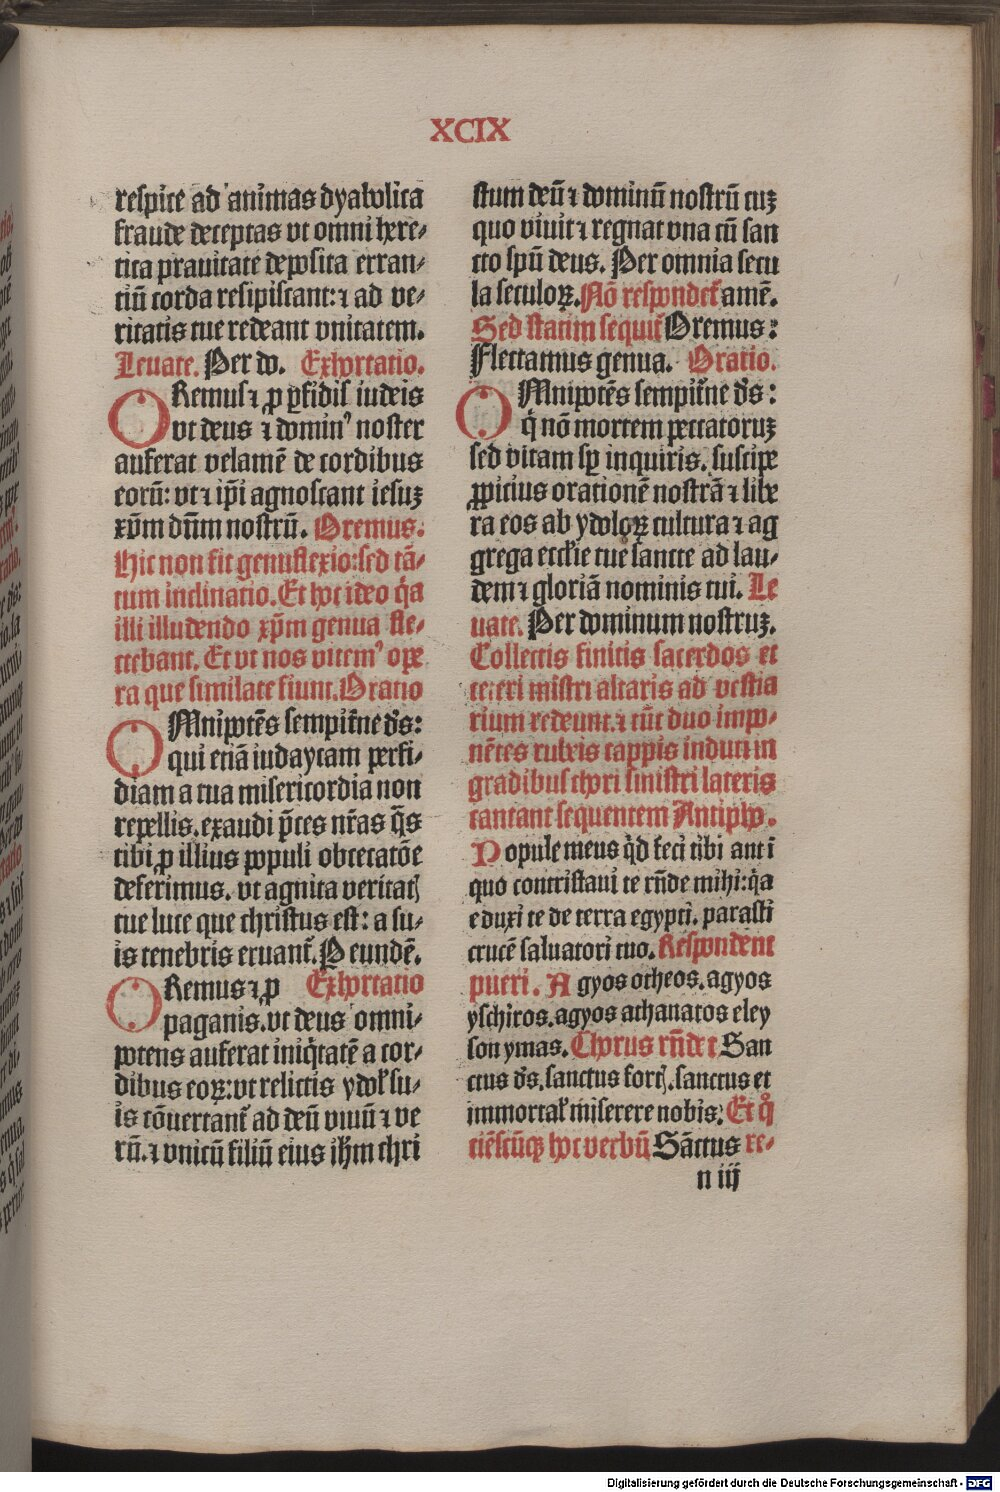 XCIX
respice ad animas dyabolica
fraude deceptas vt omni here-
tica prauitate deposita erran-
tiū corda resipiscant: ⁊ ad ve-
ritatis tue redeant vnitatem.
Leuate. Per do. Exhortatio.
ORemus ⁊ ꝓ ꝑfidis iudeis
vt deus ⁊ domin⁹ noster
auferat velamē de cordibus
eorū: vt ⁊ ip̄i agnoscant iesuꝫ
xp̄m dn̄m nostrū. Oremus.
Hic non fit genuflexio: sed tā-
tum inclinatio. Et hoc ideo q̄a
illi illudendo xp̄m genua fle-
ctebant. Et vt nos vitem⁹ ope
ra que similate fiunt. Oratio
OMnipotēs sempit̄ne ds̄:
qui etiā iudaycam perfi-
diam a tua misericordia non
repellis. exaudi p̄ces nr̄as q̄s
tibi ꝓ illius populi obcecatōe
deferimus. vt agnita veritatꝭ
tue luce que christus est: a su-
is tenebris eruant̄. P eundē.
ORemus ⁊ ꝓ Exhortatio
paganis. vt deus omni-
potens auferat iniq̄tatē a cor-
dibus eoꝝ: vt relictis ydol̄ su-
is cōuertant̄ ad deū viuū ⁊ ve
rū. ⁊ vnicū filiū eius ih̄m chri
stum deū ⁊ dominū nostrū cuꝫ
quo viuit ⁊ regnat vna cū san
cto spū deus. Per omnia secu
la seculoꝝ. Nō respondet̄ amē.
Sed statim sequit̄ Oremus:
Flectamus genua. Oratio.
OMnipotēs sempit̄ne ds̄:
q̄ nō mortem peccatoruꝫ
sed vitam sꝑ inquiris. suscipe
ꝓpicius orationē nostrā ⁊ libe
ra eos ab ydoloꝝ cultura ⁊ ag
grega eccl̄ie tue sancte ad lau-
dem ⁊ gloriā nominis tui. Le
uate. Per dominum nostruꝫ.
Collectis finitis sacerdos et
ceteri mistri altaris ad vestia
rium redeunt. ⁊ tūc duo impo-
nētes rubeis cappis induti in
gradibus chori sinistri lateris
cantant sequentem Antipho.
Popule meus q̄d feci tibi aut ī
quo contristaui te rn̄de mihi: q̄a
eduxi te de terra egypti. parasti
crucē saluatori tuo. Respondent
pueri. Agyos otheos. agyos
yschiros. agyos athanatos eley
son ymas. Chorus rn̄det San
ctus ds̄. sanctus fortꝭ. sanctus et
immortal̄ miserere nobis: Et q̊
ciēscūqꝫ hoc verbū Sāctus re-
n iij
Digitalisierung gefördert durch die Deutsche Forschungsgemeinschaft - DFG